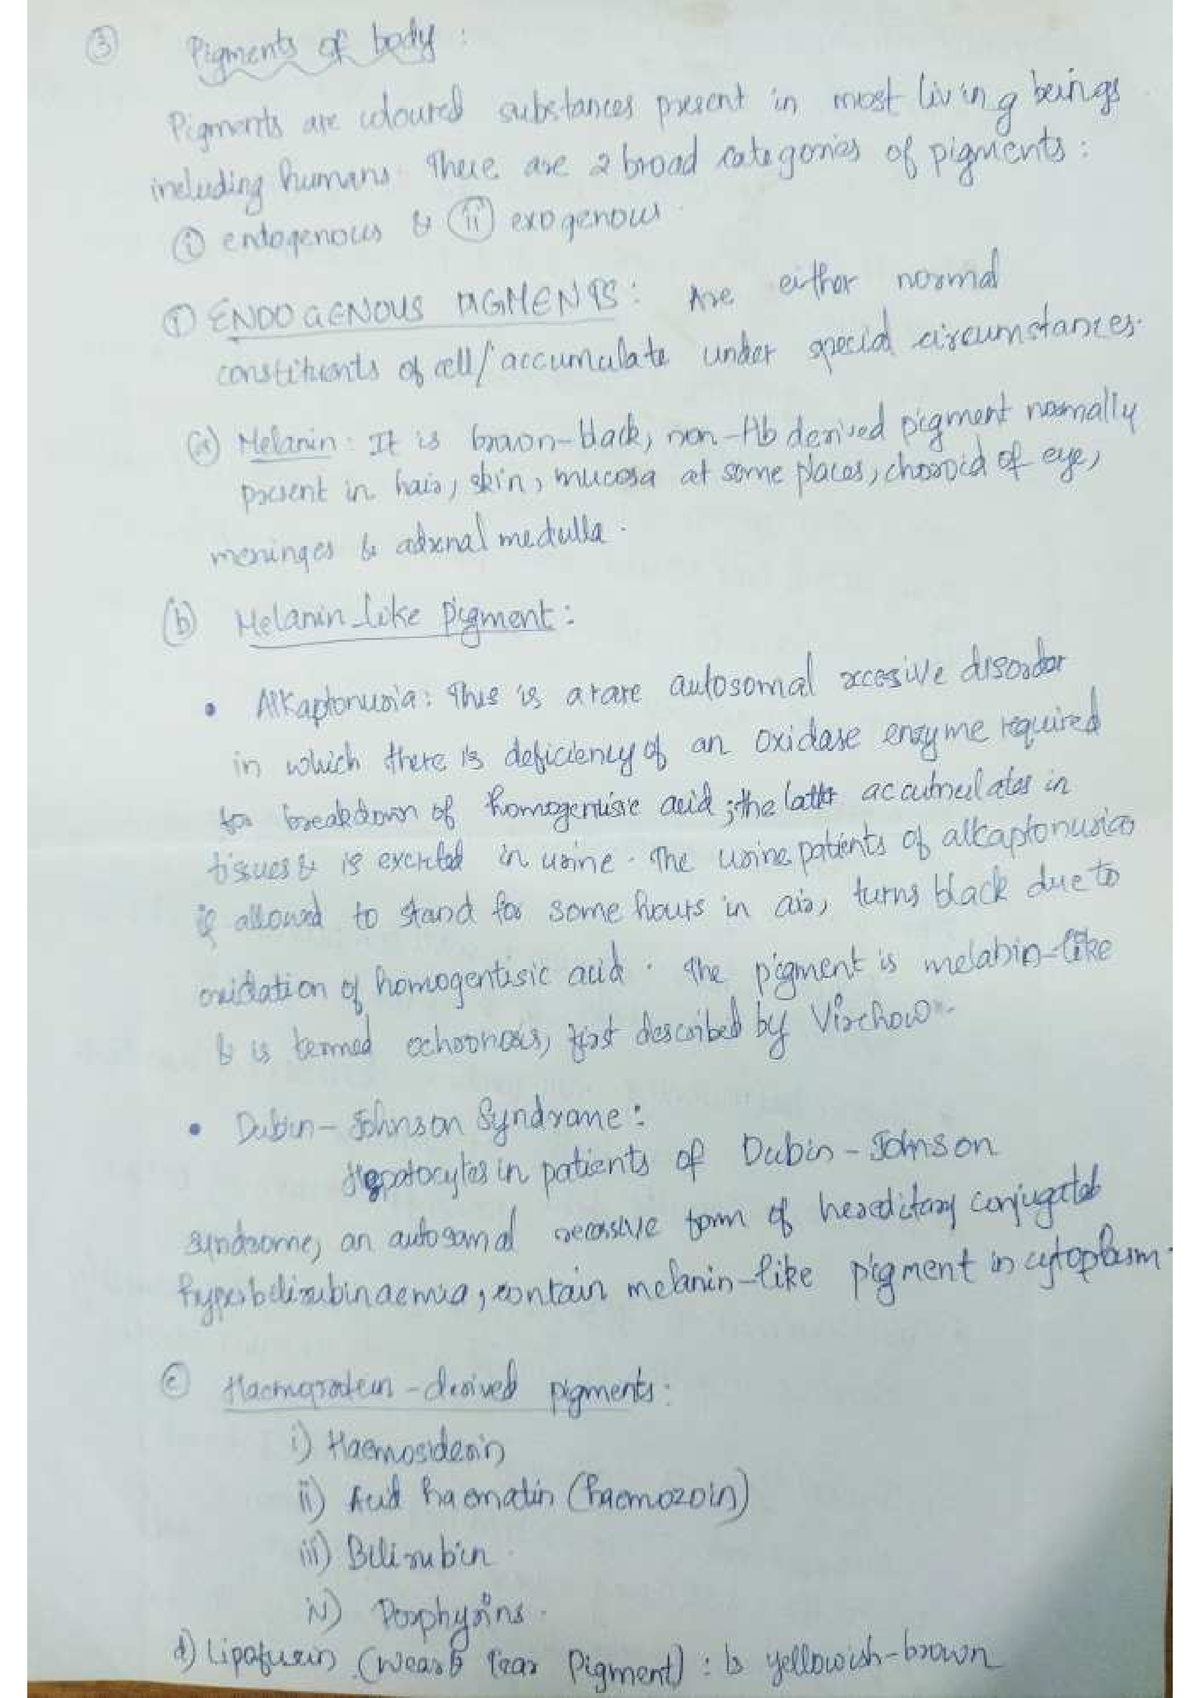 ③ Pigments of body :
Pigments are coloured substances present in most living beings
including humans. There are 2 broad categories of pigments :
ⓘ endogenous & ⓘⓘ exogenous.
ⓘ ENDOGENOUS PIGMENTS : Are either normal
constituents of cell/accumulate under special circumstances.
ⓐ Melanin : It is brown-black, non-Hb derived pigment normally
present in hair, skin, mucosa at some places, choroid of eye,
meninges & adrenal medulla.
ⓑ Melanin-like pigment :
• Alkaptonuria : This is a rare autosomal recessive disorder
in which there is deficiency of an oxidase enzyme required
for breakdown of homogentisic acid ; the latter accumulates in
tissues & is excreted in urine. The urine patients of alkaptonuria
if allowed to stand for some hours in air, turns black due to
oxidation of homogentisic acid. The pigment is melabin-like
& is termed ochronosis, first described by Virchow.
• Dubin-Johnson Syndrome :
Hepatocytes in patients of Dubin-Johnson
syndrome, an autosomal recessive form of hereditary conjugated
hyperbilirubinaemia, contain melanin-like pigment in cytoplasm.
ⓒ Haemoprotein-derived pigments :
i) Haemosiderin
ii) Acid haematin (haemozoin)
iii) Bilirubin
iv) Porphyrins.
d) Lipofuscin (Wear & Tear Pigment) : Is yellowish-brown